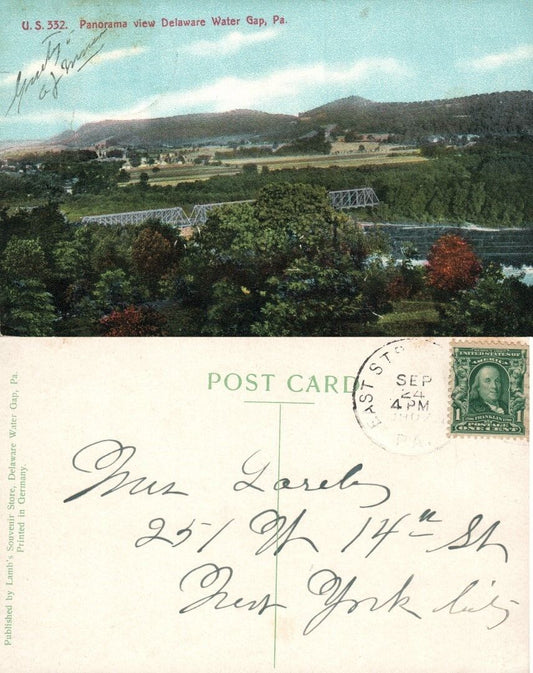 U.S. 332. Panorama view Delaware Water Gap, Pa.
POST CARD
EAST ST
SEP
24
4 PM
PA.
UNITED STATES OF
AMERICA
1
FRANKLIN
1
POSTAGE
ONE CENT
Published by Lamb's Souvenir Store, Delaware Water Gap, Pa.
Printed in Germany.
251 W 14th St
New York City